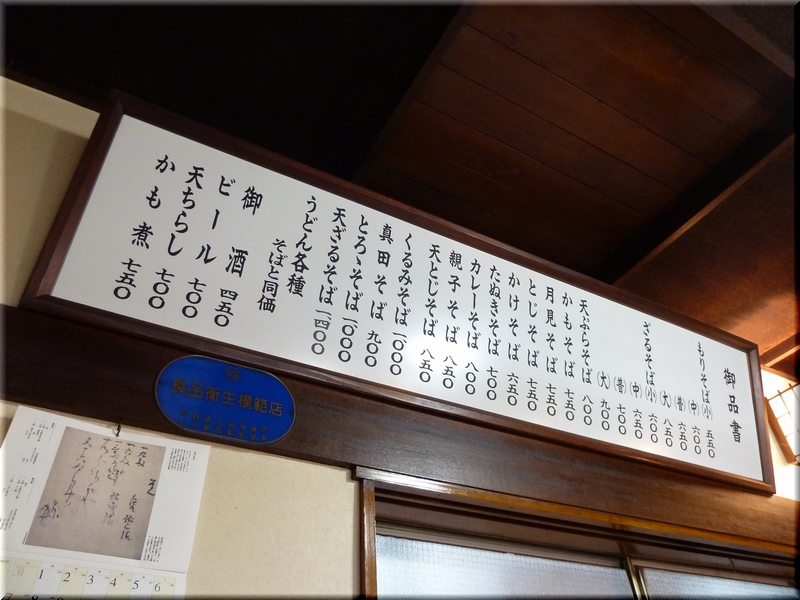 御品書
もりそば(小) 五五〇
(中) 六〇〇
(普) 六五〇
(大) 八五〇
ざるそば(小) 六〇〇
(中) 六五〇
(普) 七〇〇
(大) 九〇〇
天ぷらそば 八〇〇
かもそば 七五〇
月見そば 七五〇
とじそば 七五〇
かけそば 六五〇
たぬきそば 七〇〇
カレーそば 八〇〇
親子そば 八五〇
天とじそば 八五〇
くるみそば 一、〇〇〇
真田そば 九〇〇
とろゝそば 一、〇〇〇
天ざるそば 一、四〇〇
うどん各種
そばと同価
御酒 四五〇
ビール 七〇〇
天ちらし 七〇〇
かも煮 七五〇
食品衛生模範店
31 1 2 3 4 5 6